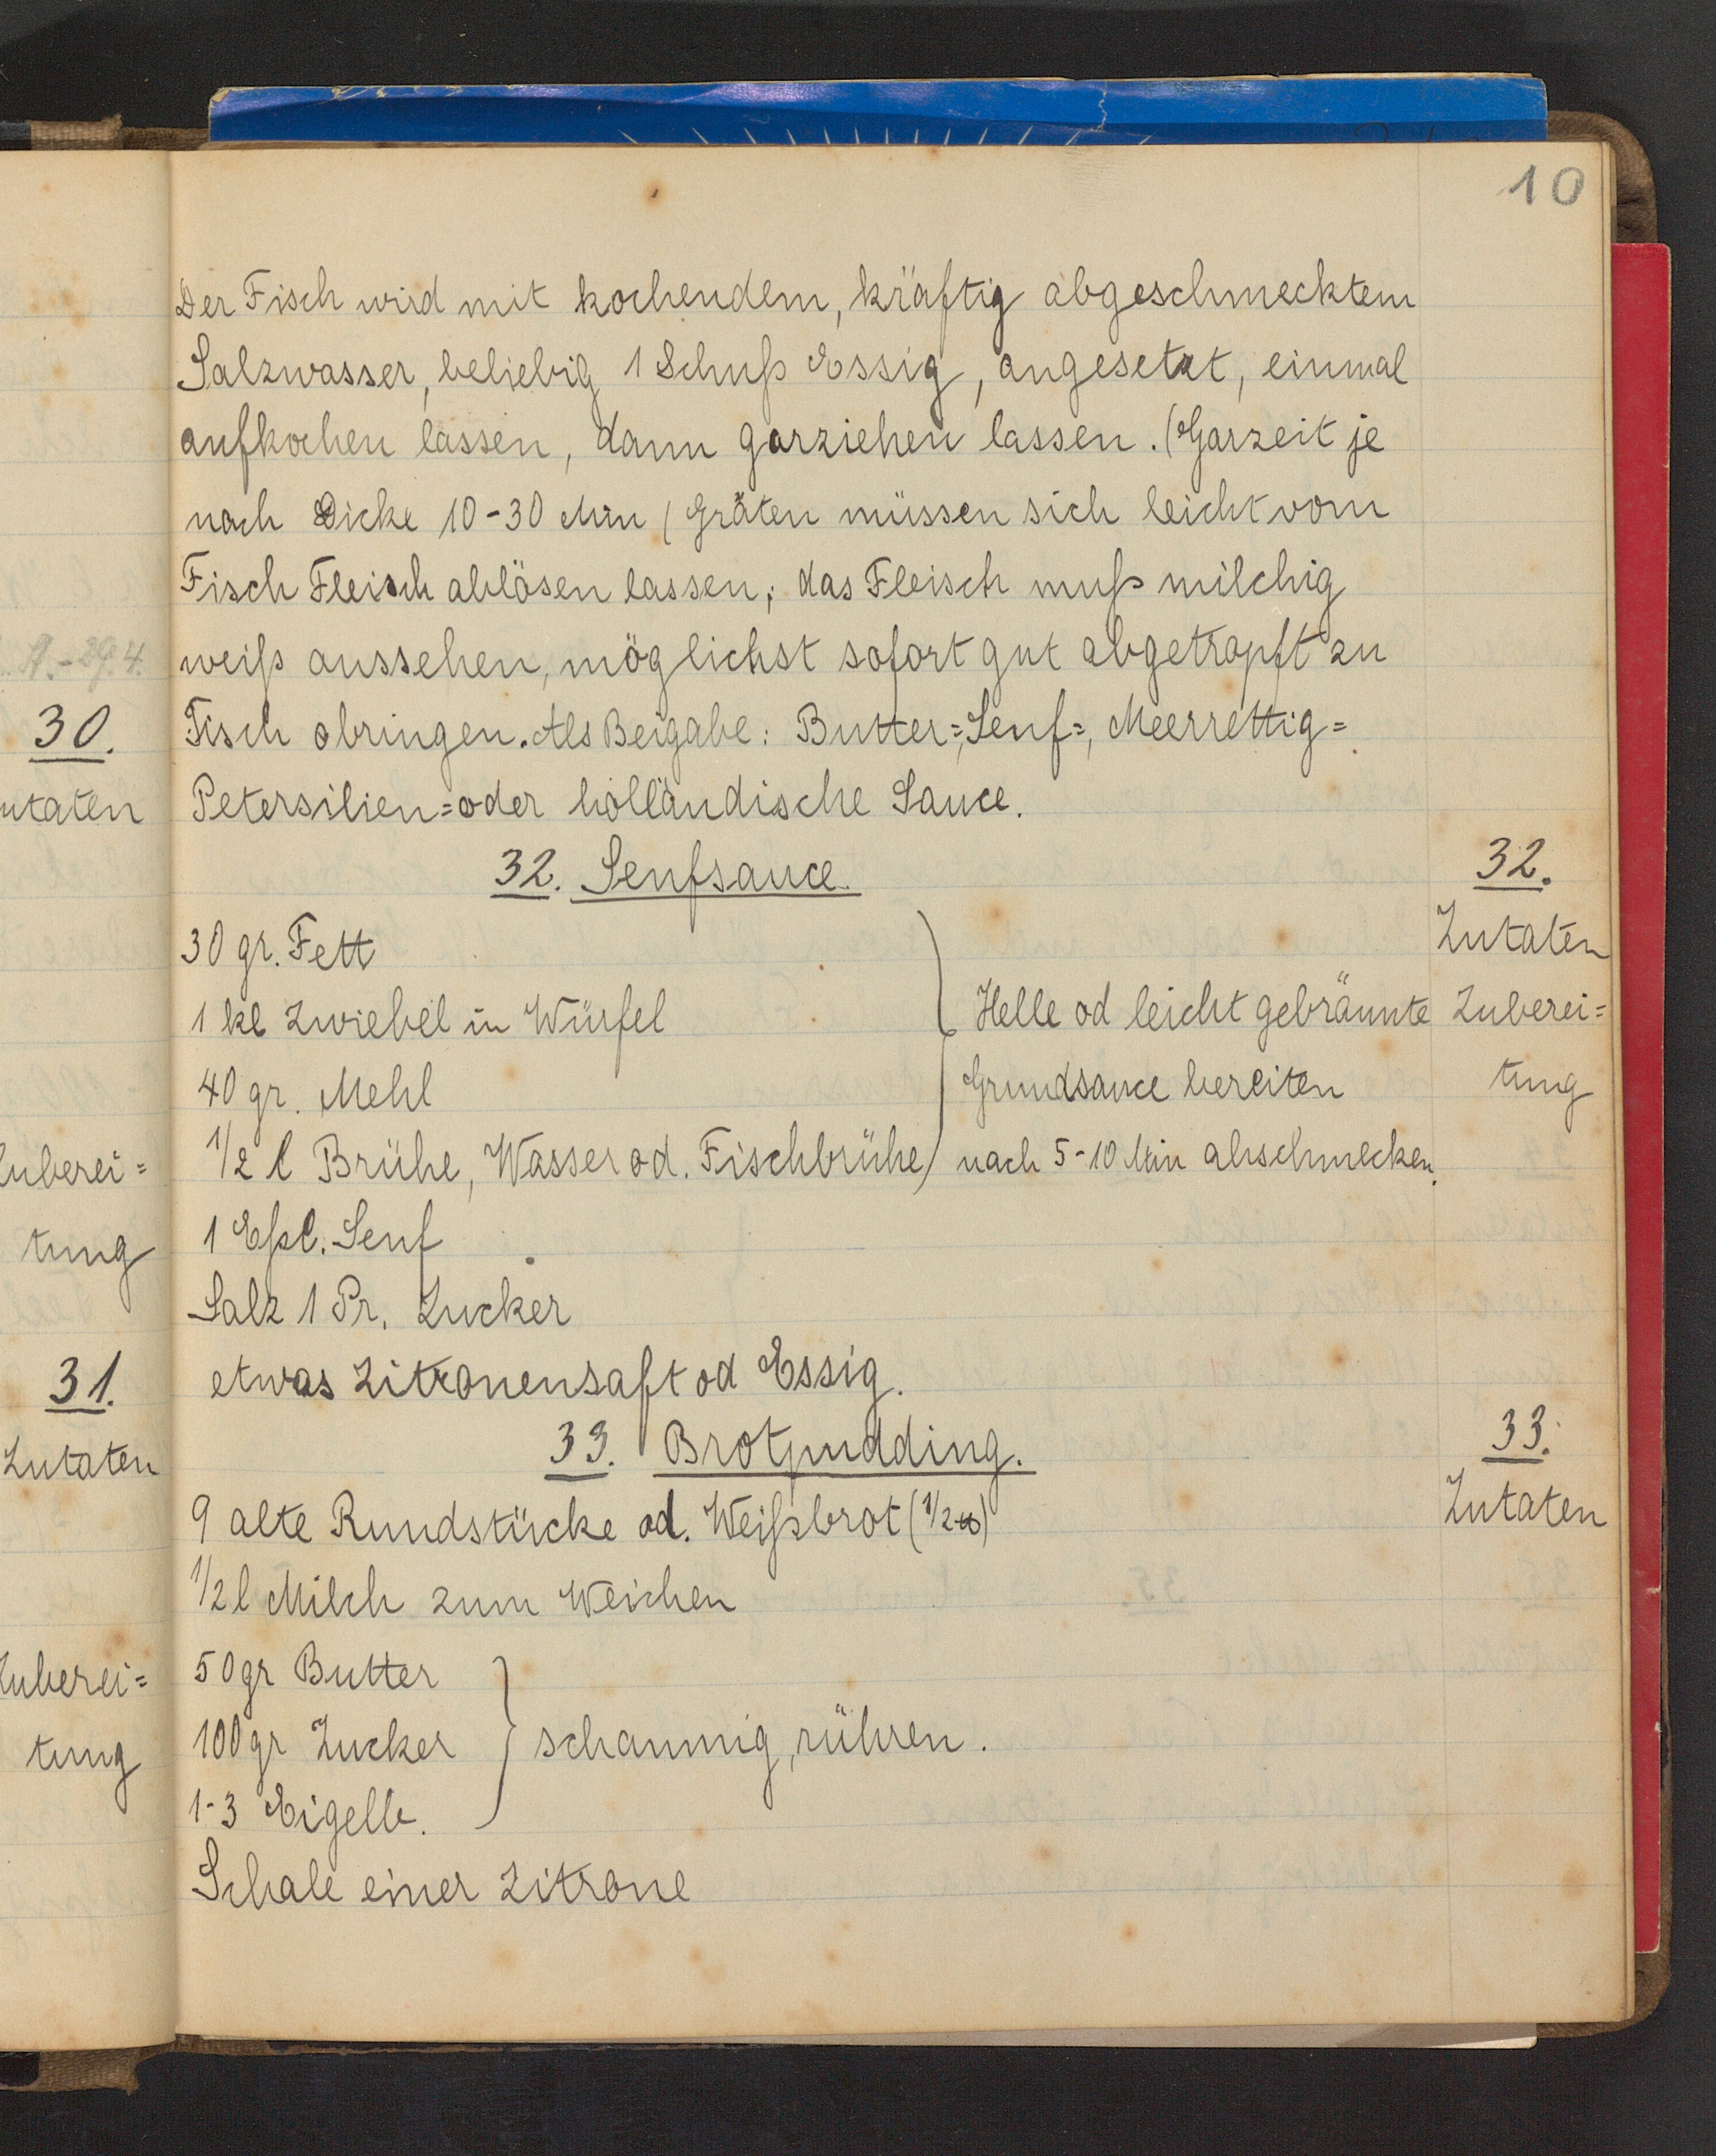 10
Der Fisch wird mit kochendem, kräftig abgeschmecktem
Salzwasser, beliebig 1 Schuß Essig, angesetzt, einmal
aufkochen lassen, dann garziehen lassen. (Garzeit je
nach Dicke 10-30 Min / Gräten müssen sich leicht vom
Fisch Fleisch ablösen lassen; das Fleisch muß milchig
weiß aussehen, möglichst sofort gut abgetropft zu
Tisch bringen. Als Beigabe: Butter=, Senf=, Meerrettig=
Petersilien= oder holländische Sauce.
32. Senfsauce.
32.
30 gr. Fett
Zutaten
1 kl Zwiebel in Würfel
Helle od leicht gebräunte
Zuberei=
40 gr. Mehl
Grundsauce bereiten
tung
1/2 l Brühe, Wasser od. Fischbrühe
nach 5-10 Min abschmecken.
1 Eßl. Senf
Salz 1 Pr. Zucker
etwas Zitronensaft od Essig.
33. Brotpudding.
33.
9 alte Rundstücke od. Weißbrot (1/2 ℔)
Zutaten
1/2 l Milch zum Weichen
50 gr Butter
100 gr Zucker
schaumig rühren.
1-3 Eigelb.
Schale einer Zitrone
29.4.
30.
utaten
Zuberei=
tung
31.
Zutaten
Zuberei=
tung